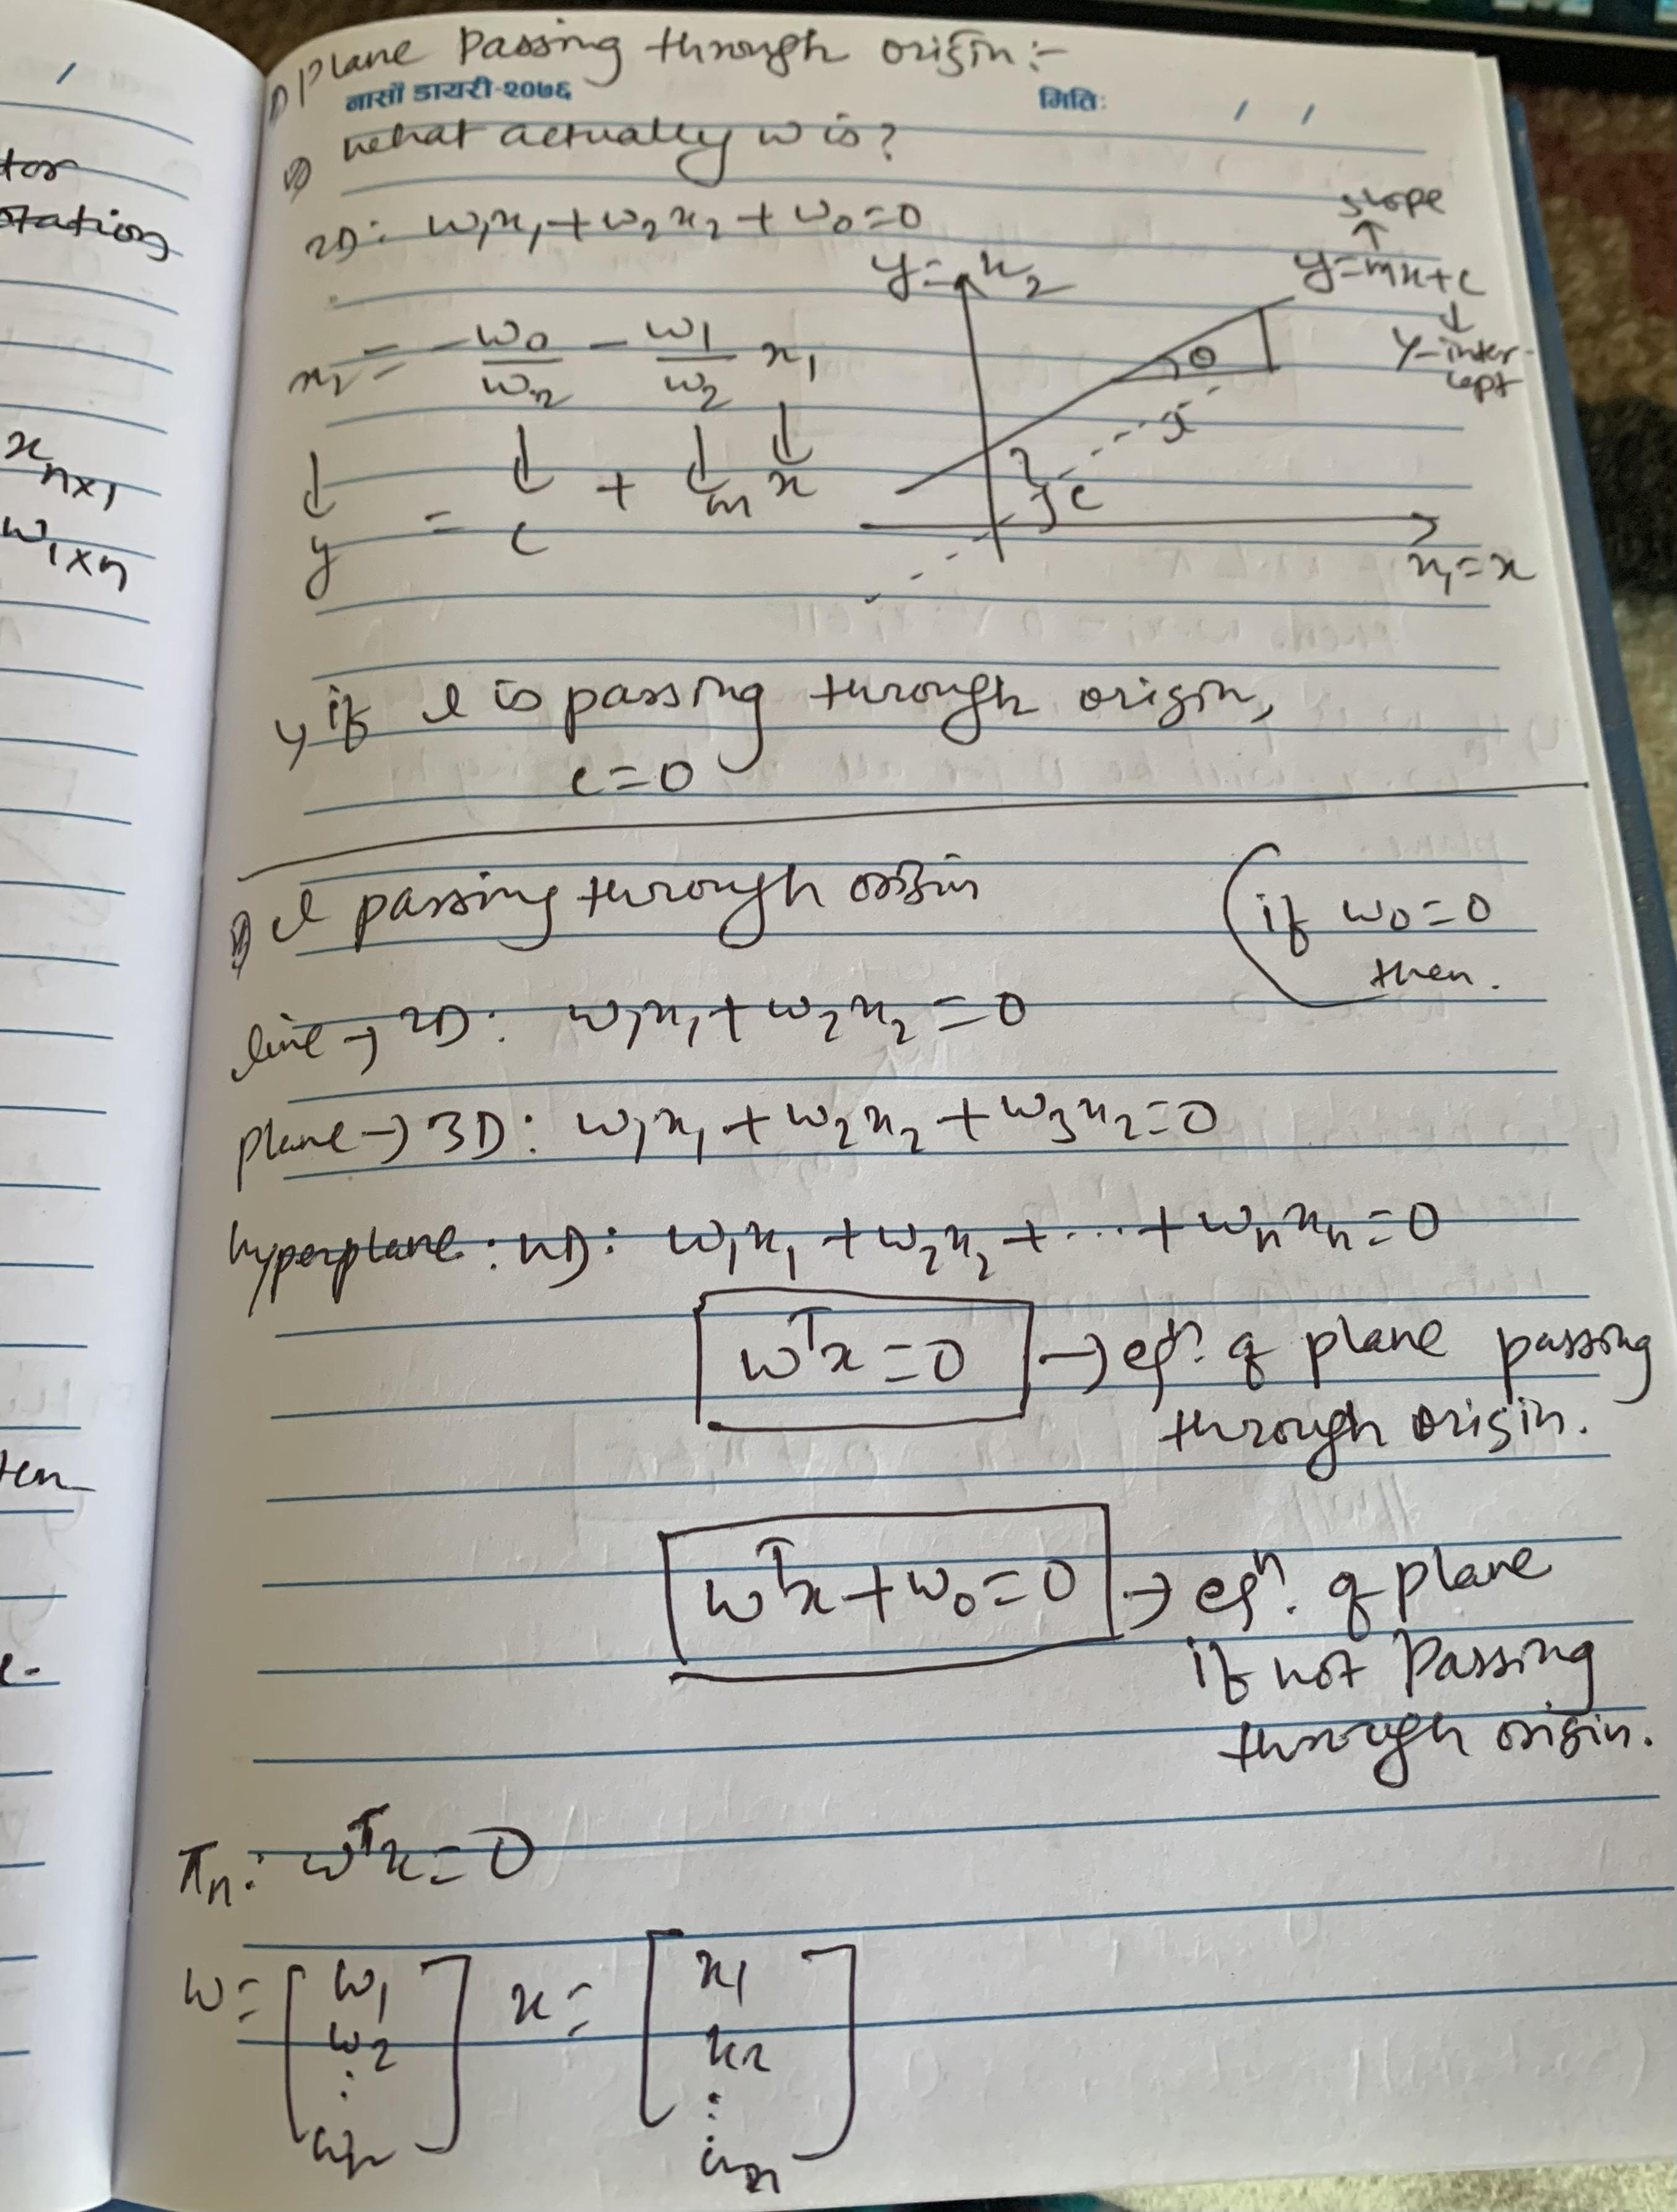 tor
otation
x n×1
w 1×n
ten
1) plane passing through origin:-
नासों डायरी-२०७६ मितिः / /
what actually w is?
2D: w₁x₁ + w₂x₂ + w₀ = 0
x₂ = - w₀/w₂ - w₁/w₂ x₁
y = c + m x
y = x₂
slope
↑
y = mx + c
↓
y-inter-
cept
θ
c
x₁ = x
if l is passing through origin,
c = 0
l passing through origin
(if w₀ = 0
then.
line → 2D: w₁x₁ + w₂x₂ = 0
plane → 3D: w₁x₁ + w₂x₂ + w₃x₂ = 0
hyperplane: nD: w₁x₁ + w₂x₂ + ... + wₙxₙ = 0
wᵀx = 0 → eqⁿ. of plane passing
through origin.
wᵀx + w₀ = 0 → eqⁿ. of plane
if not passing
through origin.
πₙ: wᵀx = 0
w = [w₁ x = [x₁
w₂ x₂
⋮ ⋮
wₙ] xₙ]